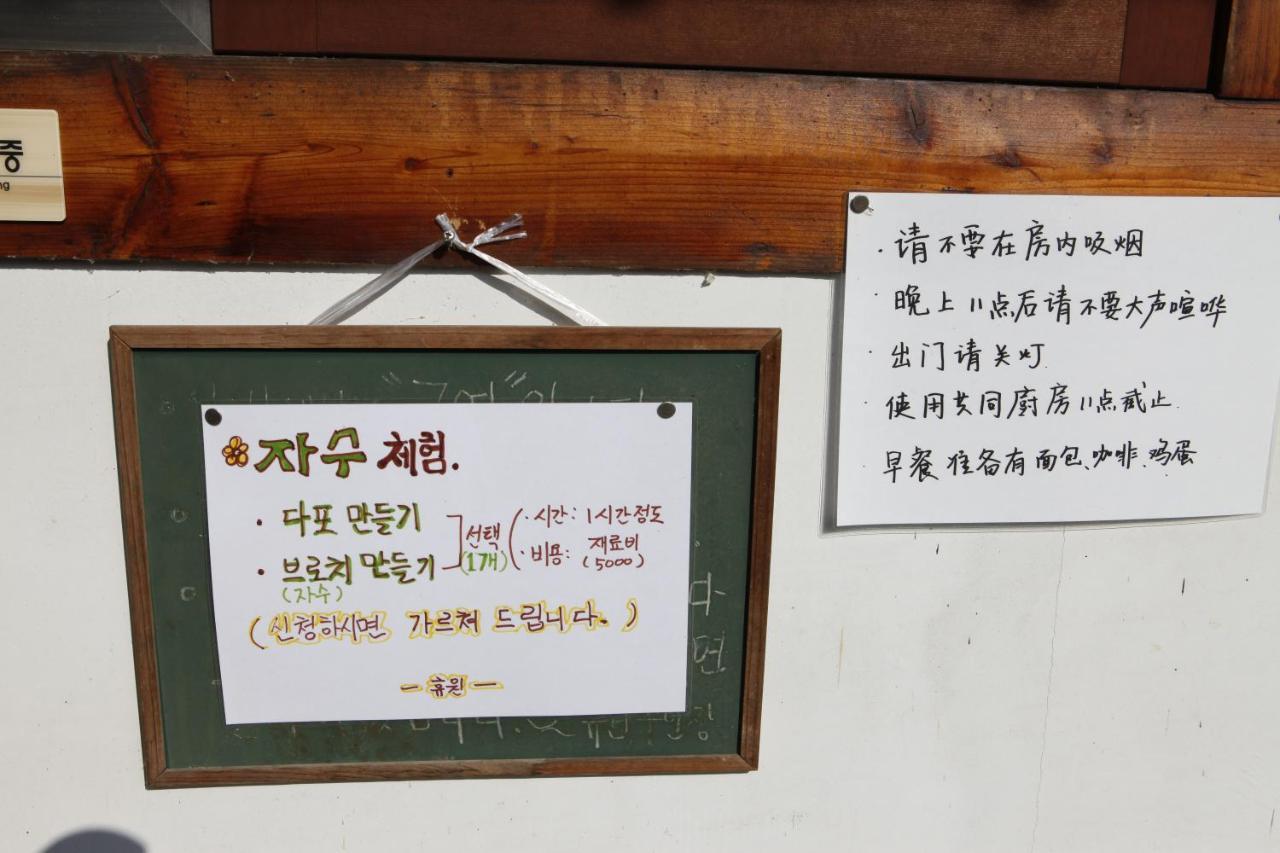 중
ng
자수 체험.
· 다포 만들기
· 브로치 만들기
(자수)
선택
(1개)
· 시간: 1시간정도
· 비용: 재료비
(5000)
(신청하시면 가르쳐 드립니다.)
- 휴원 -
다
면
· 请不要在房内吸烟
· 晚上11点后请不要大声喧哗
· 出门请关灯
· 使用共同厨房11点截止
· 早餐准备有面包、咖啡、鸡蛋